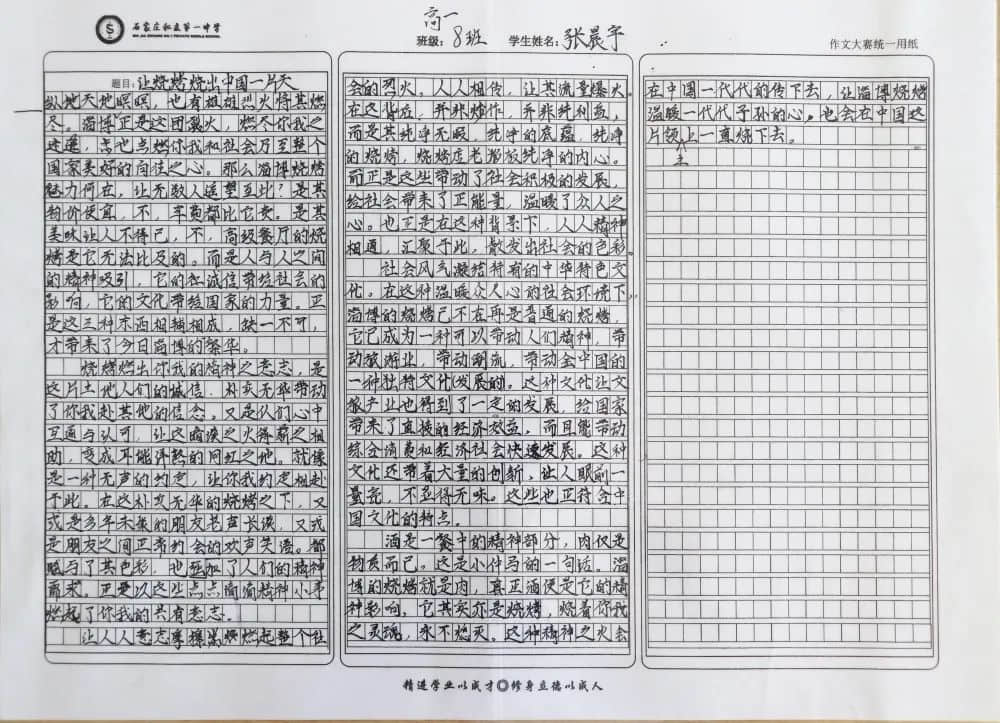 石家庄私立第一中学
高一
班级：8班 学生姓名：张晨宇
作文大赛统一用纸
题目：让烧烤烧出中国一片天
纵地天地暝暝，也有雄雄烈火将其燃
尽。淄博正是这团烈火，燃尽你我之
迷遥，点也点燃你我和社会乃至整个
国家美好的向往之心。那么淄博烧烤
魅力何在，让无数人遥望至此？是其
物价便宜，不，车费都比它贵。是其
美味让人不得已，不，高级餐厅的烧
烤是它无法比及的。而是人与人之间
的精神吸引，它的在诚信带给社会的
影响，它的文化带给国家的力量。正
是这三种东西相辅相成，缺一不可，
才带来了今日淄博的繁华。
烧烤燃出你我的精神之意志，是
这片土地人们的诚信、朴实无华带动
了你我赴其他的信念。又是人们心中
互通与认可，让这暗淡之火得薪之相
助，变成耳能详熟的网红之地。就像
是一种无声的约定，让你我约定相赴
于此。在这朴实无华的烧烤之下，又
或是多年未集的朋友老声长谈，又或
是朋友之间正常约会的欢声笑语。都
赋与了其色彩，也添加了人们的精神
需求。正是以这些点点滴滴精神小事
燃起了你我的共有意志。
让人人意志摩擦点燃燃起整个社
会的烈火。人人相传，让其流量爆火。
在这背后，并非炒作，并非纯利益，
而是其纯净无暇，纯净的底蕴，纯净
的烧烤，烧烤店老板放纯净的内心。
而正是这些带动了社会积极的发展，
给社会带来了正能量，温暖了众人之
心。也正是在这种背景下，人人精神
相通，汇聚于此，散发出社会的色彩。
社会风气凝结特有的中华特色文
化。在这种温暖众人心的社会环境下，
淄博的烧烤已不在再是普通的烧烤，
它已成为一种可以带动人们精神，带
动旅游业，带动潮流，带动全中国的
一种独特文化发展的。这种文化让文
旅产业也得到了一定的发展，给国家
带来了直接的经济效益，而且能带动
综合消费和经济社会快速发展。这种
文化还带着大量的创新，让人眼前一
量亮，不显得无味。这些也正符合中
国文化的特点。
酒是一餐中的精神部分，肉仅是
物质而已。这是小仲马的一句话。淄
博的烧烤就是肉，真正酒便是它的精
神影响。它其实亦是烧烤，烧着你我
之灵魂，永不熄灭。这种精神之火会
在中国一代代的传下去，让淄博烧烤
温暖一代代子孙的心。也会在中国这
片领土上一直烧下去。
精进学业以成才 修身立德以成人